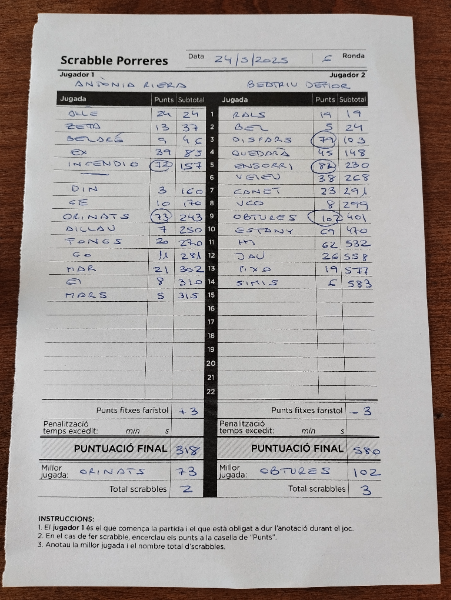 Scrabble Porreres Data 24/5/2025 6 Ronda
Jugador 1 Jugador 2
ANTÒNIA RIERA BEATRIU DEFIOR
Jugada Punts Subtotal Jugada Punts Subtotal
OLLE 24 24 1 RALS 19 19
ZETA 13 37 2 BEL 5 24
9 46 3 DISPARS 79 103
EX 39 85 4 QUEDARÀ 45 148
INCENDIO 72 157 5 ENSORRI 82 230
6 VEIEU 38 268
DIN 3 160 7 CANET 23 291
CE 10 170 8 UCO 8 299
ORINATS 73 243 9 OBTURES 102 401
DILLAU 7 250 10 ESTANY 69 470
TONGS 20 270 11 HI 62 532
GO 11 281 12 JAU 26 558
MAR 21 302 13 PIXO 19 577
8 310 14 SIMIS 6 583
MARS 5 315 15
16
17
18
19
20
21
22
Punts fitxes faristol +3 Punts fitxes faristol -3
Penalització Penalització
temps excedit: min s temps excedit: min s
PUNTUACIÓ FINAL 318 PUNTUACIÓ FINAL 580
Millor jugada: ORINATS 73 Millor jugada: OBTURES 102
Total scrabbles 2 Total scrabbles 3
INSTRUCCIONS:
1. El jugador 1 és el que comença la partida i el que està obligat a dur l'anotació durant el joc.
2. En el cas de fer scrabble, encerclau els punts a la casella de "Punts".
3. Anotau la millor jugada i el nombre total d'scrabbles.